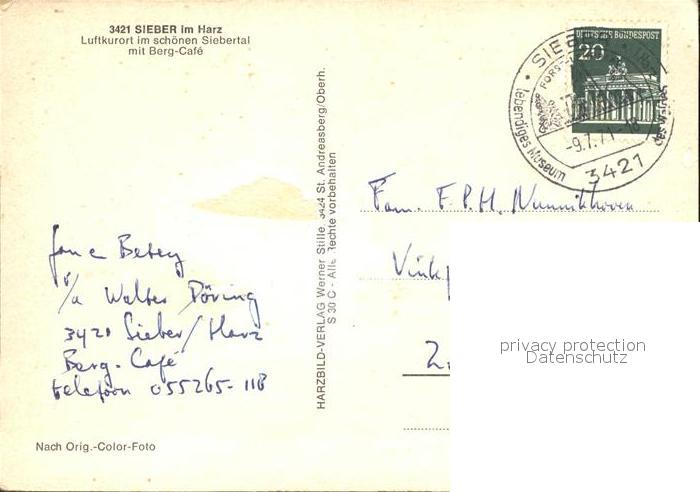 3421 SIEBER im Harz
Luftkurort im schönen Siebertal
mit Berg-Café
DEUTSCHE BUNDESPOST
20
SIEBER
lebendiges Museum
des Waldes
-9.7.71-18
3421
HARZBILD-VERLAG Werner Stille, 3424 St. Andreasberg/Oberh.
S 30 C - Alle Rechte vorbehalten
Fam. F.P.H. Nunnikhoven
2.
p/a Walter Döring
3421 Sieber/Harz
Berg-Café
telefoon 055265-118
privacy protection
Datenschutz
Nach Orig.-Color-Foto